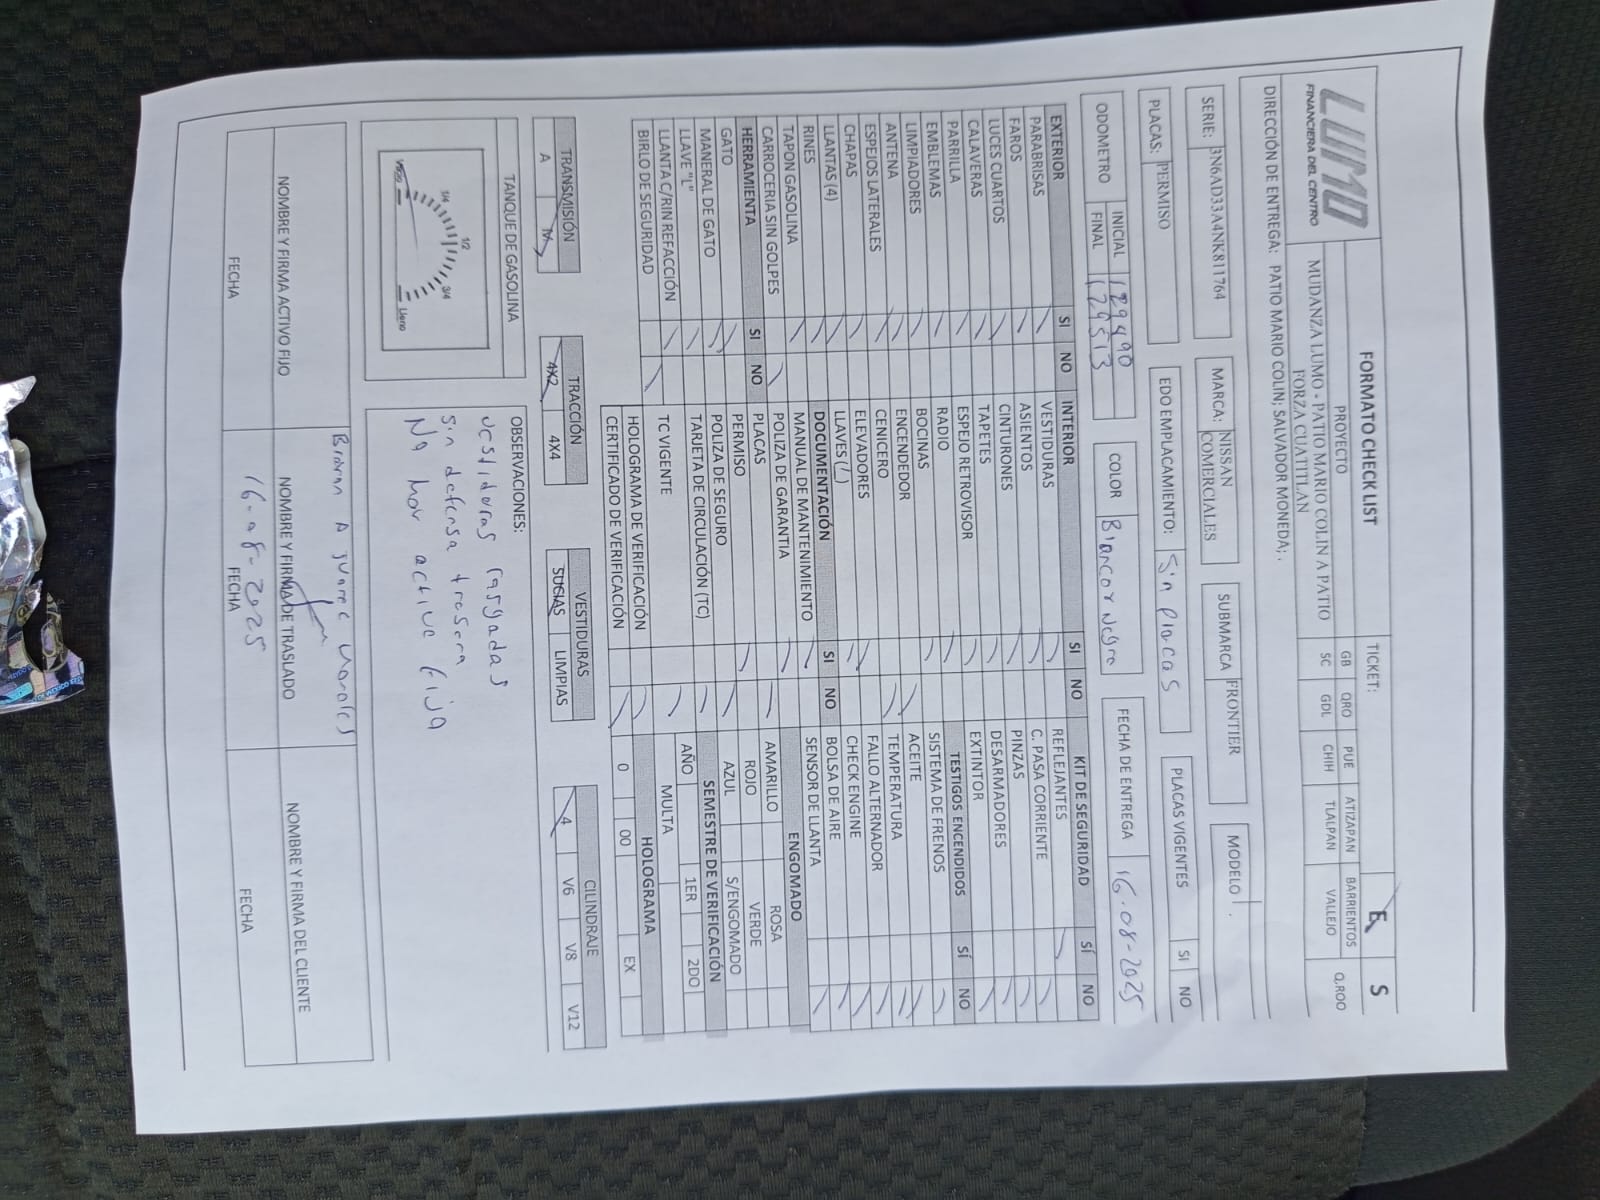 LUMO
FINANCIERA DEL CENTRO
FORMATO CHECK LIST
TICKET:
E
S
PROYECTO
MUDANZA LUMO - PATIO MARIO COLIN A PATIO
FORZA CUATITLAN
GB QRO PUE ATIZAPAN BARRIENTOS Q,ROO
SC GDL CHIH TLALPAN VALLEJO
DIRECCIÓN DE ENTREGA: PATIO MARIO COLIN; SALVADOR MONEDA; .
SERIE: 3N6AD33A4NK811764
MARCA: NISSAN COMERCIALES
SUBMARCA FRONTIER
MODELO .
PLACAS: PERMISO
EDO EMPLACAMIENTO: Sin placas
PLACAS VIGENTES SI NO
ODOMETRO INICIAL 129490
FINAL 129513
COLOR Blanco y Negro
FECHA DE ENTREGA 16-08-2025
EXTERIOR SI NO
PARABRISAS
FAROS
LUCES CUARTOS
CALAVERAS
PARRILLA
EMBLEMAS
LIMPIADORES
ANTENA
ESPEJOS LATERALES
CHAPAS
LLANTAS (4)
RINES
TAPON GASOLINA
CARROCERIA SIN GOLPES
HERRAMIENTA SI NO
GATO
MANERAL DE GATO
LLAVE "L"
LLANTA C/RIN REFACCIÓN
BIRLO DE SEGURIDAD
INTERIOR SI NO
VESTIDURAS
ASIENTOS
CINTURONES
TAPETES
ESPEJO RETROVISOR
RADIO
BOCINAS
ENCENDEDOR
CENICERO
ELEVADORES
LLAVES (/)
DOCUMENTACIÓN SI NO
MANUAL DE MANTENIMIENTO
POLIZA DE GARANTIA
PLACAS
PERMISO
POLIZA DE SEGURO
TARJETA DE CIRCULACIÓN (TC)
TC VIGENTE
HOLOGRAMA DE VERIFICACIÓN
CERTIFICADO DE VERIFICACIÓN
KIT DE SEGURIDAD SÍ NO
REFLEJANTES
C. PASA CORRIENTE
PINZAS
DESARMADORES
EXTINTOR
TESTIGOS ENCENDIDOS SÍ NO
SISTEMA DE FRENOS
ACEITE
TEMPERATURA
FALLO ALTERNADOR
CHECK ENGINE
BOLSA DE AIRE
SENSOR DE LLANTA
ENGOMADO
AMARILLO ROSA
ROJO VERDE
AZUL S/ENGOMADO
SEMESTRE DE VERIFICACIÓN
AÑO 1ER 2DO
MULTA
HOLOGRAMA
0 00 EX
TRANSMISIÓN
A M
TRACCIÓN
4X2 4X4
VESTIDURAS
SUCIAS LIMPIAS
CILINDRAJE
4 V6 V8 V12
TANQUE DE GASOLINA
Vacio 1/4 1/2 3/4 Lleno
OBSERVACIONES:
vestiduras rasgadas
sin defensa trasera
No hay activo fijo
NOMBRE Y FIRMA ACTIVO FIJO
FECHA
NOMBRE Y FIRMA DE TRASLADO
16-08-2025
FECHA
NOMBRE Y FIRMA DEL CLIENTE
FECHA